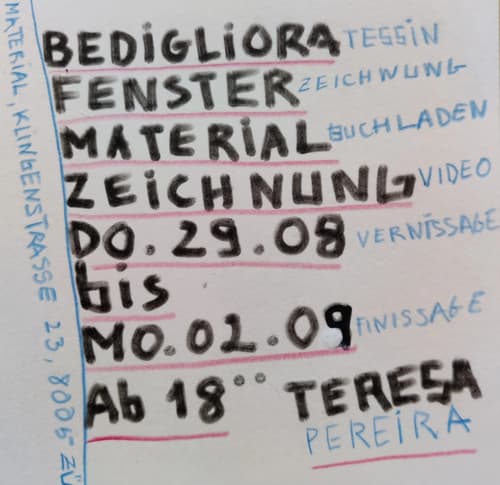 MATERIAL, KLINGENSTRASSE 23, 8005 ZÜ
BEDiGLiORA TESSiN
FENSTER ZEiCHNUNG
MATERiAL BUCHLADEN
ZEiCHNUNG ViDEO
DO. 29.08 VERNiSSAGE
bis
MO. 02.09 FiNiSSAGE
Ab 18°° TERESA
PEREiRA